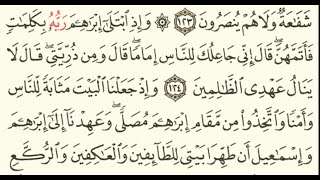 شَفَٰعَةٞ وَلَا هُمۡ يُنصَرُونَ ١٢٣ ۞ وَإِذِ ٱبۡتَلَىٰٓ إِبۡرَٰهِـۧمَ رَبُّهُۥ بِكَلِمَٰتٖ
فَأَتَمَّهُنَّۖ قَالَ إِنِّي جَاعِلُكَ لِلنَّاسِ إِمَامٗاۖ قَالَ وَمِن ذُرِّيَّتِيۖ قَالَ لَا
يَنَالُ عَهۡدِي ٱلظَّٰلِمِينَ ١٢٤ وَإِذۡ جَعَلۡنَا ٱلۡبَيۡتَ مَثَابَةٗ لِّلنَّاسِ
وَأَمۡنٗا وَٱتَّخِذُواْ مِن مَّقَامِ إِبۡرَٰهِـۧمَ مُصَلّٗىۖ وَعَهِدۡنَآ إِلَىٰٓ إِبۡرَٰهِـۧمَ
وَإِسۡمَٰعِيلَ أَن طَهِّرَا بَيۡتِيَ لِلطَّآئِفِينَ وَٱلۡعَٰكِفِينَ وَٱلرُّكَّعِ